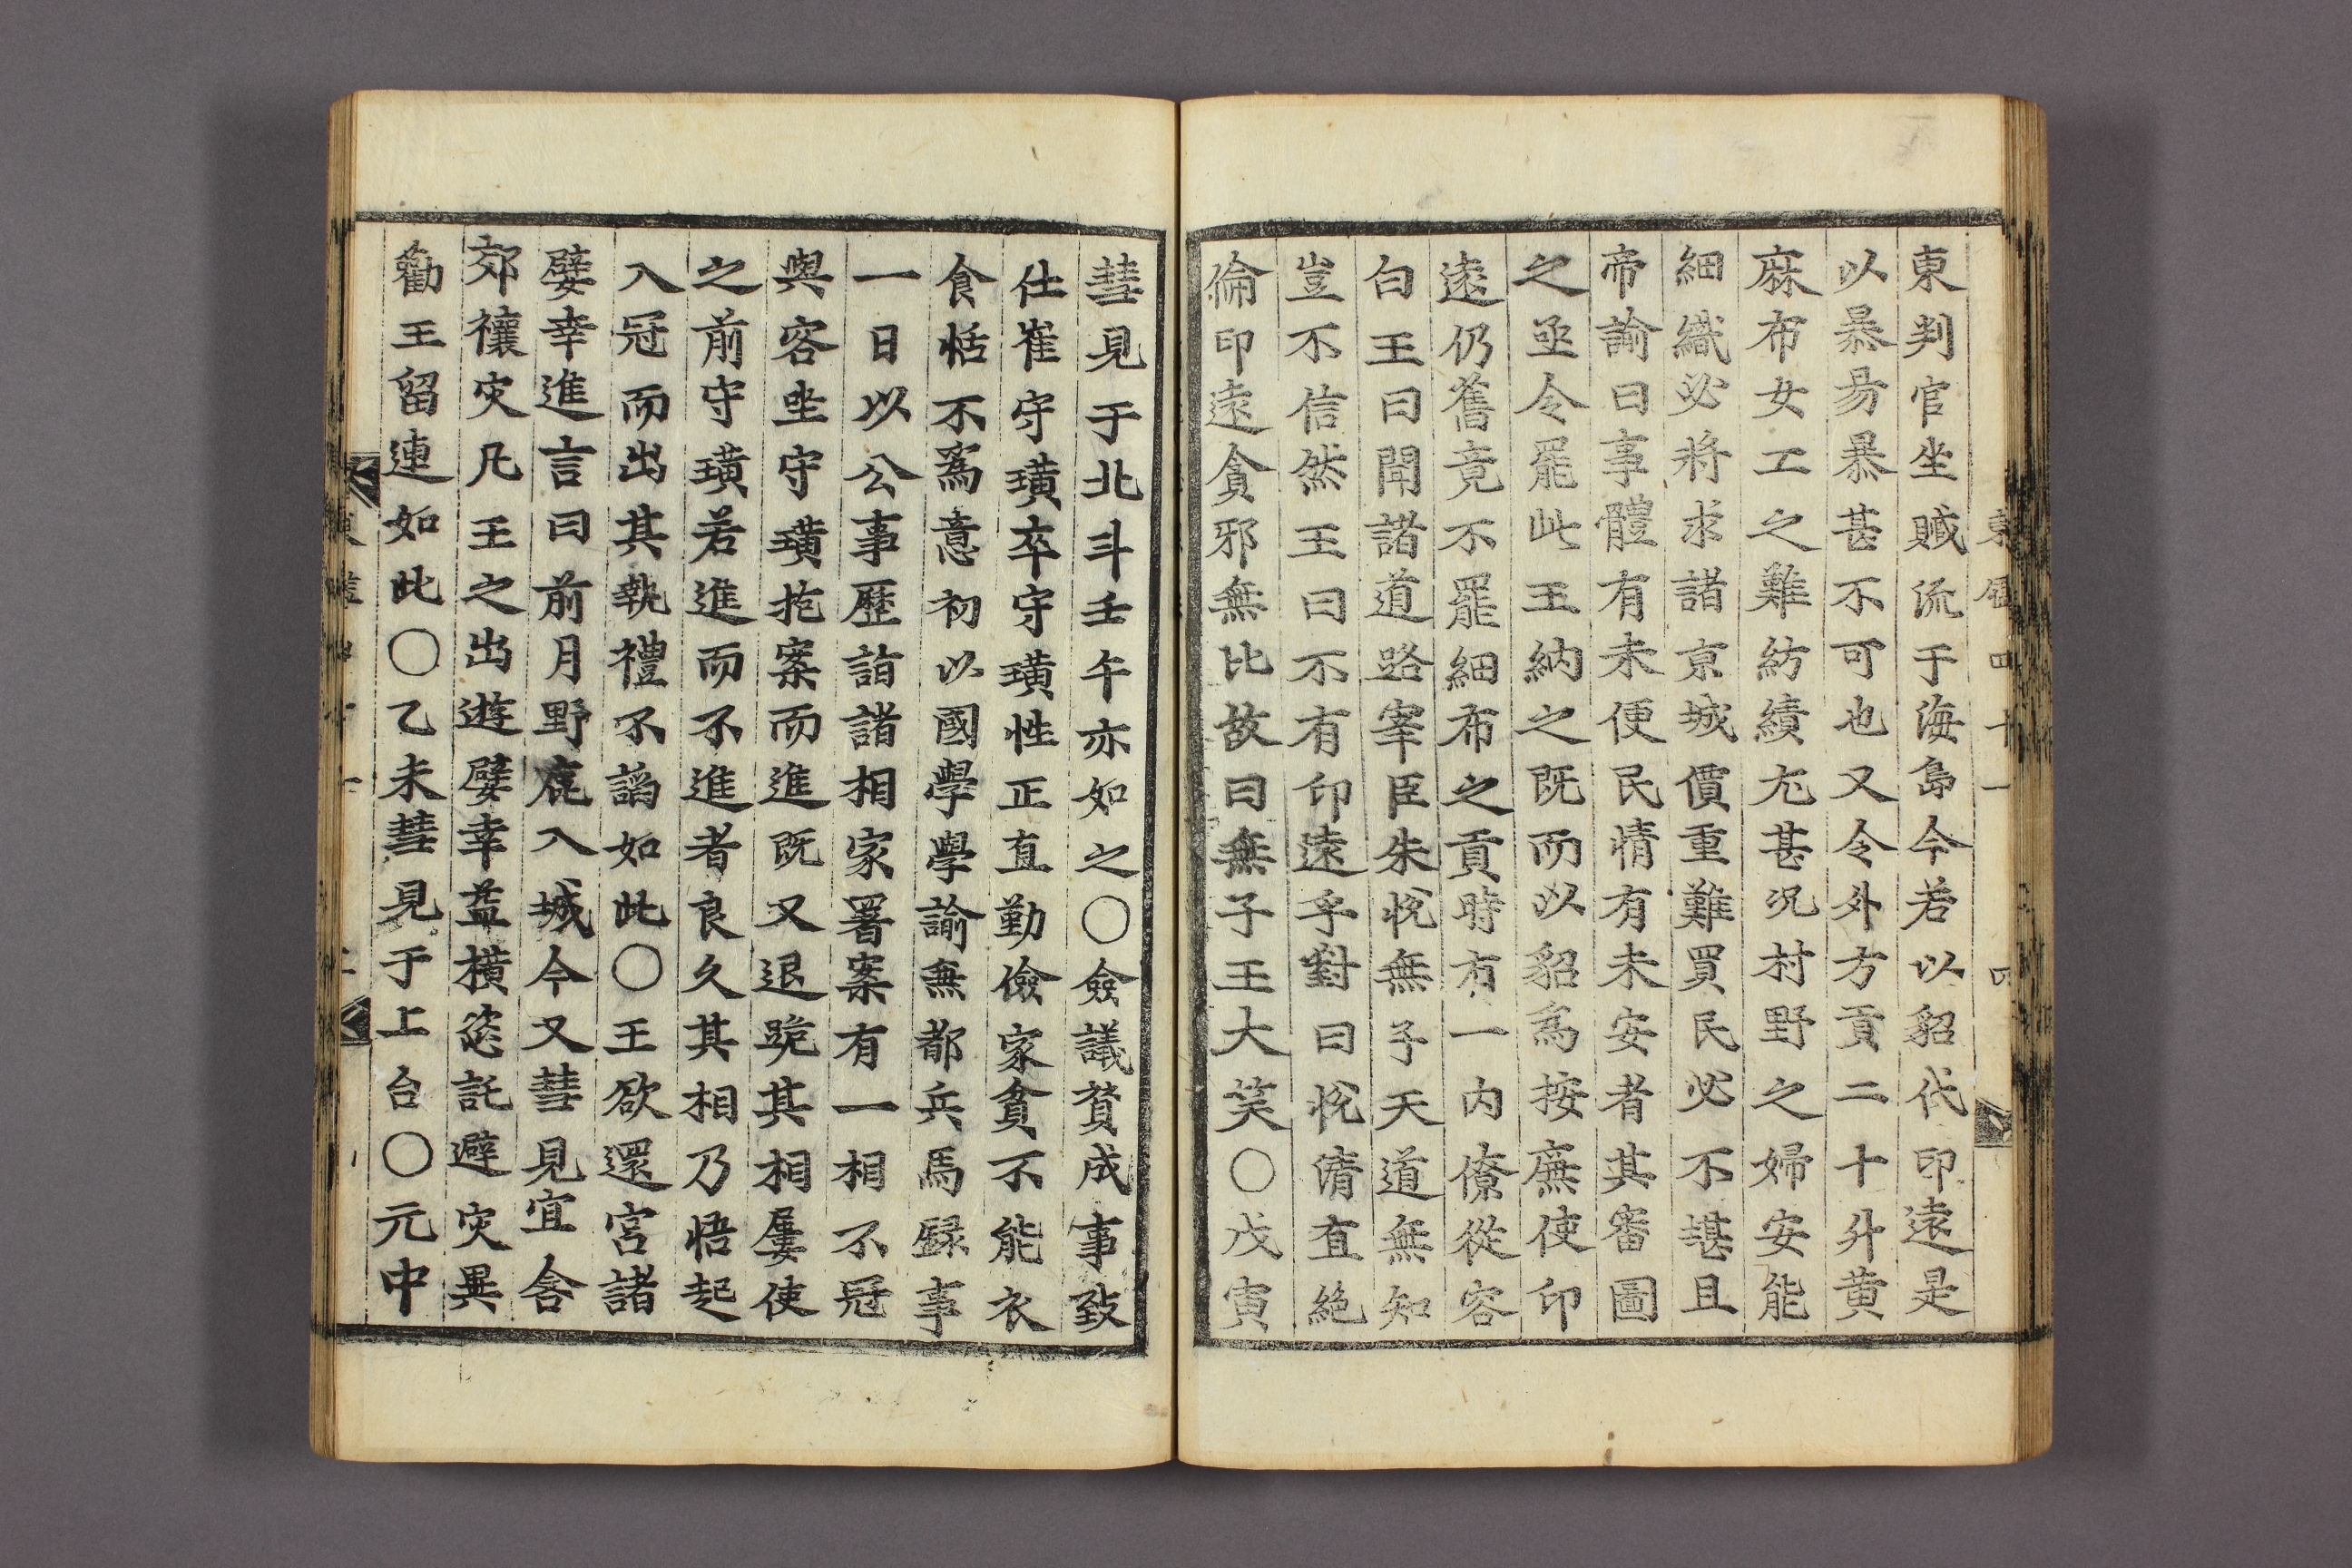 東判官坐贓流于海島今若以貂代印遠是
以暴易暴甚不可也又令外方貢二十升黄
麻布女工之難紡績尤甚况村野之婦安能
細織必將求諸京城價重難買民必不堪且
帝諭曰事體有未便民情有未安者其審圖
之亟令罷此王納之既而以貂爲按廉使印
遠仍舊竟不罷細布之貢時有一内僚從容
白王曰聞諸道路宰臣朱悦無子天道無知
豈不信然王曰不有印遠乎對曰悦清直絶
倫印遠貪邪無比故曰無子王大笑○戊寅
彗見于北斗壬午亦如之○僉議贊成事致
仕崔守璜卒守璜性正直勤儉家貧不能衣
食恬不爲意初以國學學諭無都兵馬録事
一日以公事歷詣諸相家署案有一相不冠
與客坐守璜抱案而進既又退跪其相屢使
之前守璜若進而不進者良久其相乃悟起
入冠而出其執禮不謟如此○王欲還宮諸
嬖幸進言曰前月野鹿入城今又彗見宜舍
郊禳灾凡王之出遊嬖幸益横恣託避灾異
勸王留連如此○乙未彗見于上台○元中